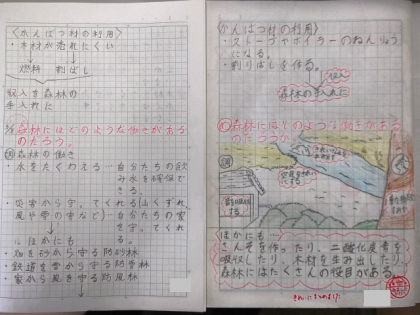 〈かんばつ材の利用〉
・木材が売れにくい
燃料 割りばし
収入を森林の
手入れに
森林にはどのような働きがある
のだろう。
森林の働き
・水をたくわえる…自分たちの飲
み水を確保で
きる。
・災害から守ってくれる(山くずれ、
風や雪の害など)…自分たちの家
を守ってくれ
る。
ほかにも
・畑を砂から守る防砂林
・鉄道を雪から守る防雪林
・家から風を守る防風林
〈かんばつ材の利用〉
・ストーブやボイラーのねんりょう
になる。
・割りばしを作る。
収入
森林の手入れに
森林にはどのような働きがある
のだろうか。
ほかにも…
さんそを作ったり、二酸化炭素を
吸収したり、木材を生み出したり、
森林にはたくさんの役目がある。
きれいにまとめました!